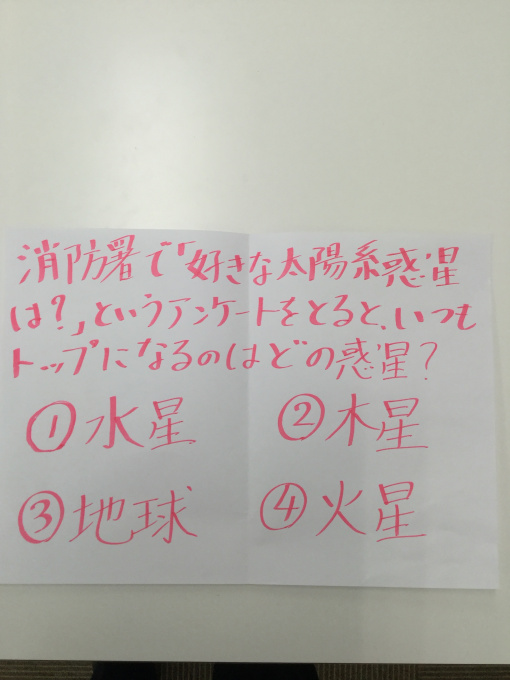 消防署で「好きな太陽系惑星
は?」というアンケートをとると、いつも
トップになるのはどの惑星?
①水星 ②木星
③地球 ④火星